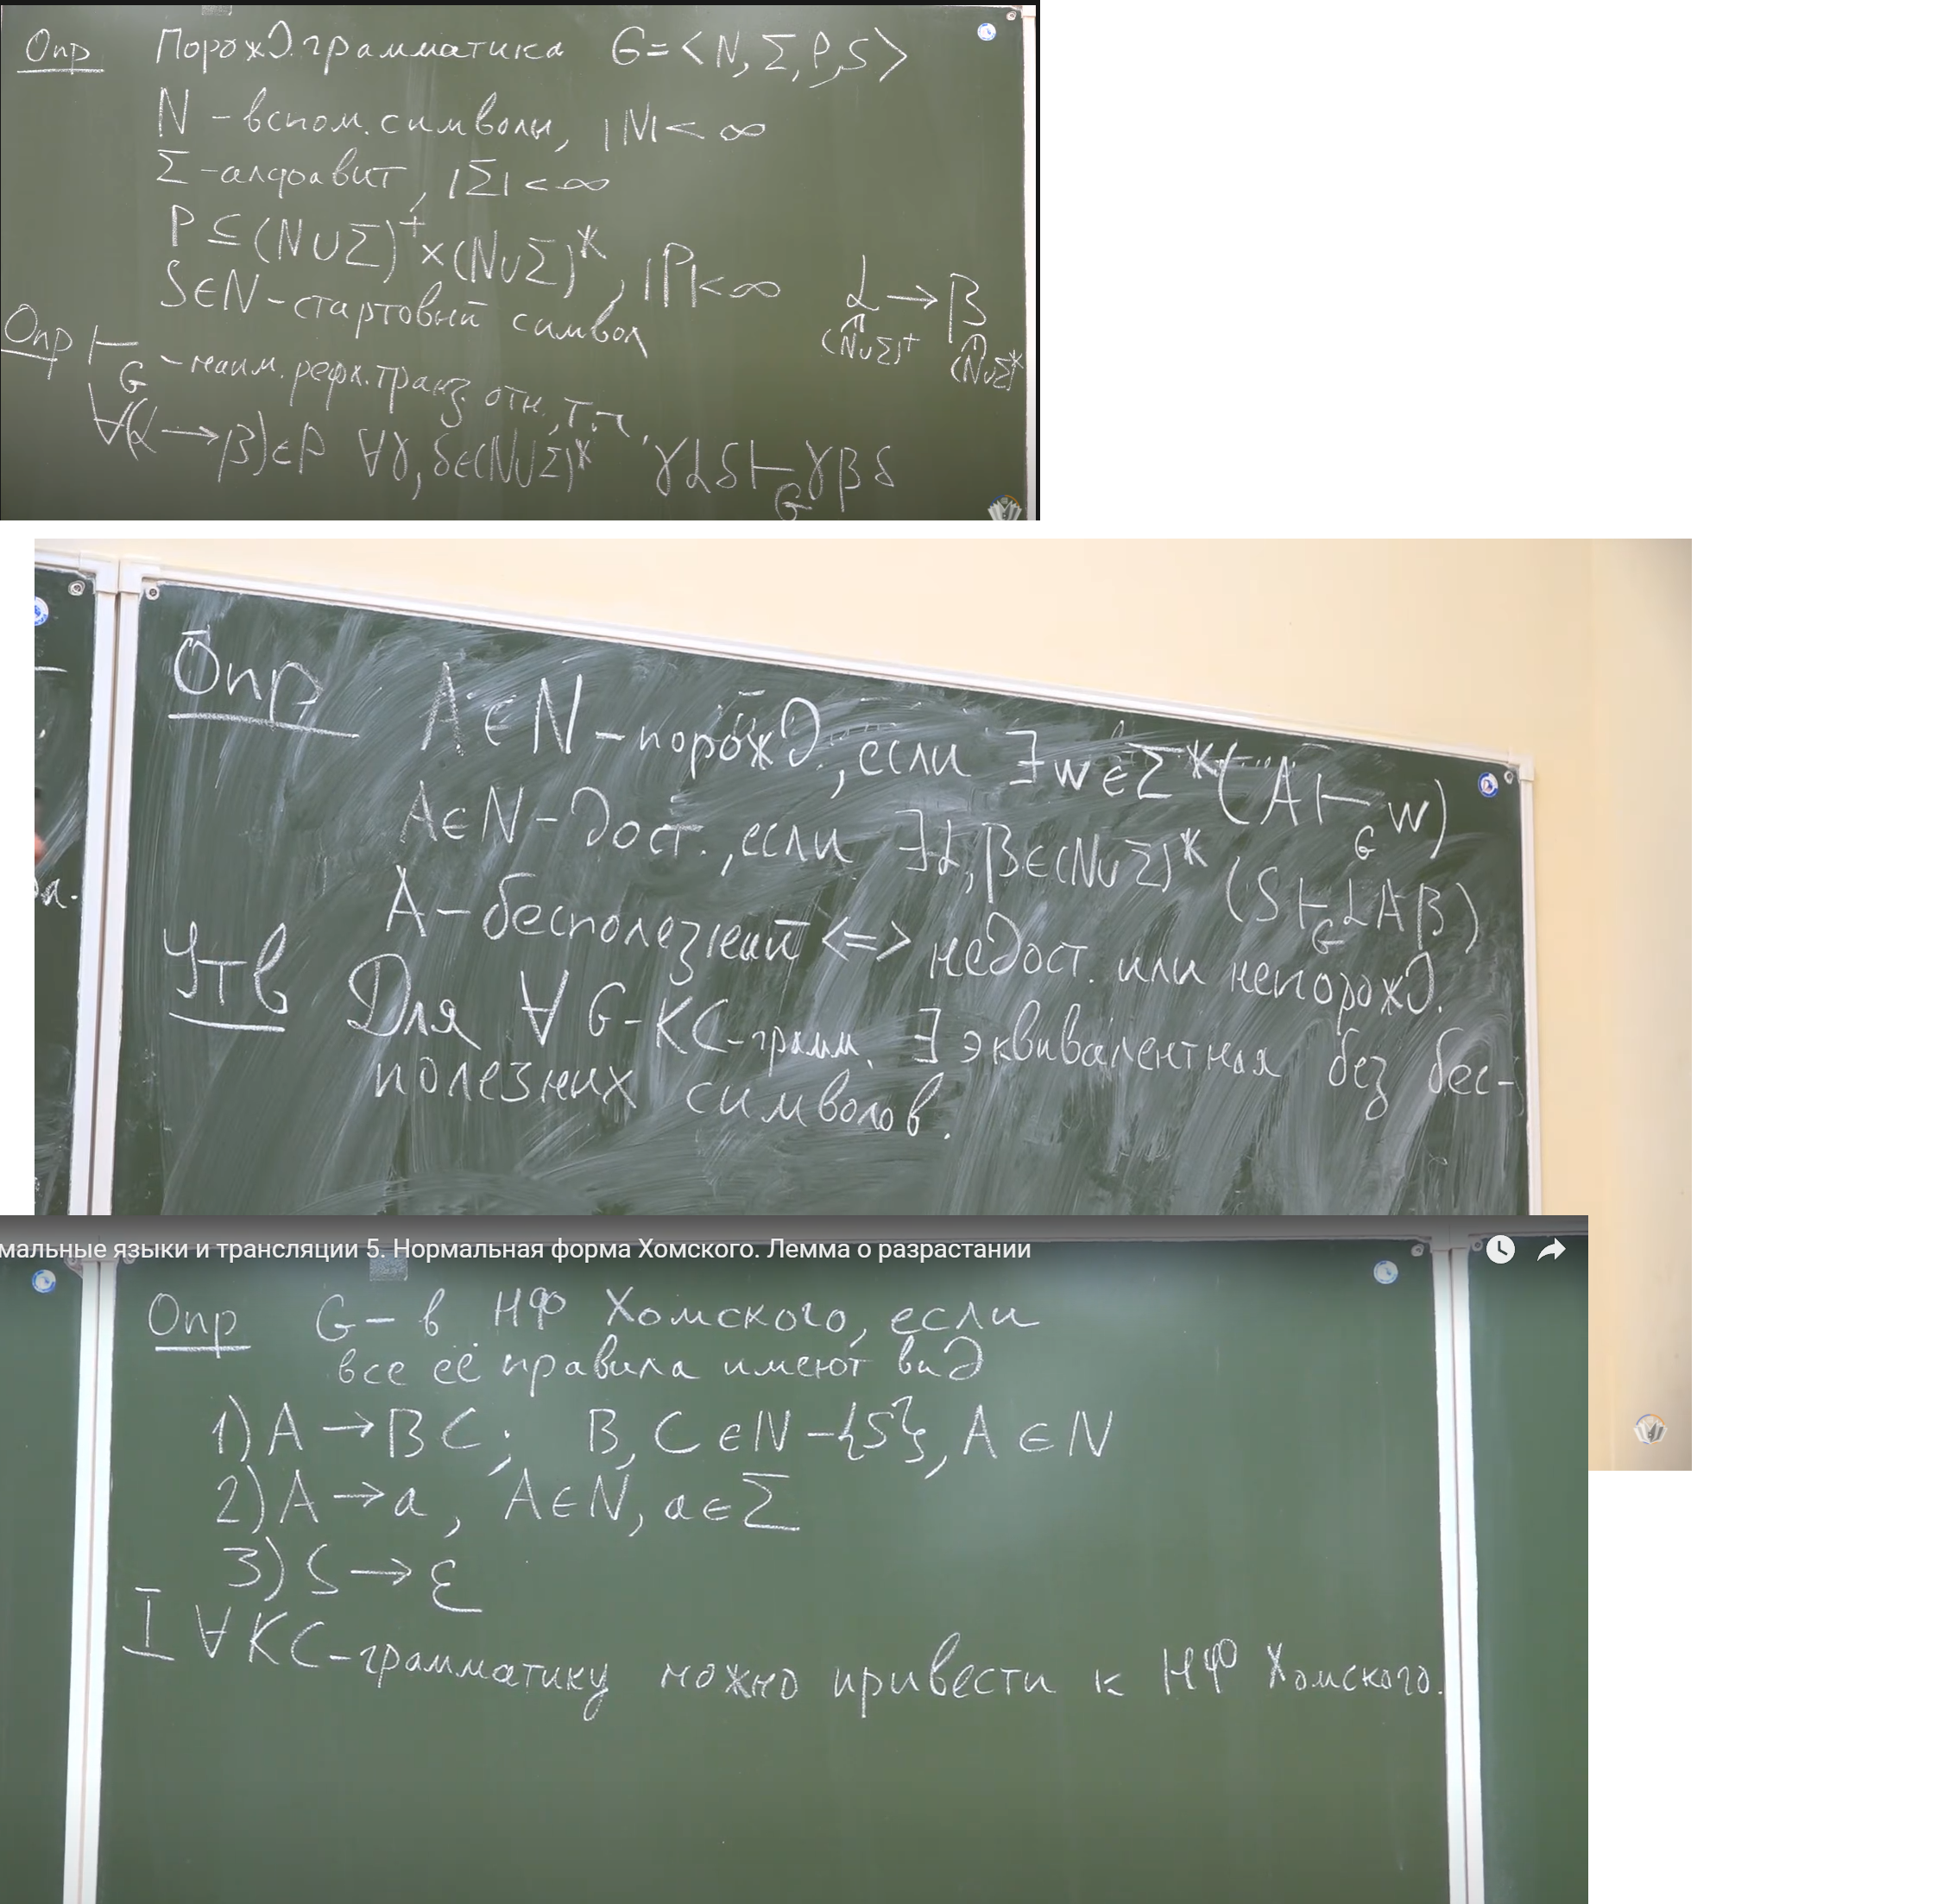 Опр Порожд. грамматика G = <N, Σ, P, S>
N - вспом. символы, |N| < ∞
Σ - алфавит, |Σ| < ∞
P ⊆ (N∪Σ)⁺ × (N∪Σ)*, |P| < ∞
S∈N - стартовый символ
α → β
(N∪Σ)⁺ (N∪Σ)*
Опр ⊢_G - наим. рефл. транз. отн., т.ч.
∀(α → β)∈P ∀γ, δ∈(N∪Σ)* γαδ ⊢_G γβδ
Опр A∈N - порожд., если ∃w∈Σ* (A ⊢_G w)
A∈N - дост., если ∃α, β∈(N∪Σ)* (S ⊢_G αAβ)
A - бесполезный <=> недост. или непорожд.
Утв Для ∀ G - КС-грамм. ∃ эквивалентная без бес-
полезных символов.
мальные языки и трансляции 5. Нормальная форма Хомского. Лемма о разрастании
Опр G - в НФ Хомского, если
все её правила имеют вид
1) A → BC; B, C ∈ N - {S}, A ∈ N
2) A → a, A∈N, a∈Σ
3) S → ε
I ∀ КС-грамматику можно привести к НФ Хомского.